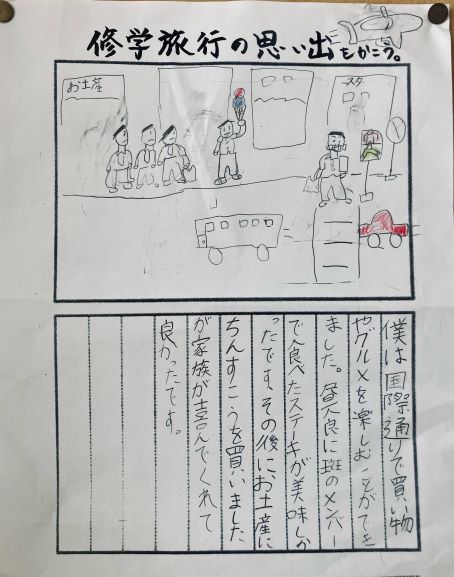 修学旅行の思い出をかこう。
お土産
スタ
僕は国際通りで買い物
やグルメを楽しむことができ
ました。昼食に班のメンバー
で食べたステーキが美味しか
ったです、その後にお土産に
ちんすこうを買いました
が家族が喜んでくれて
良かったです。